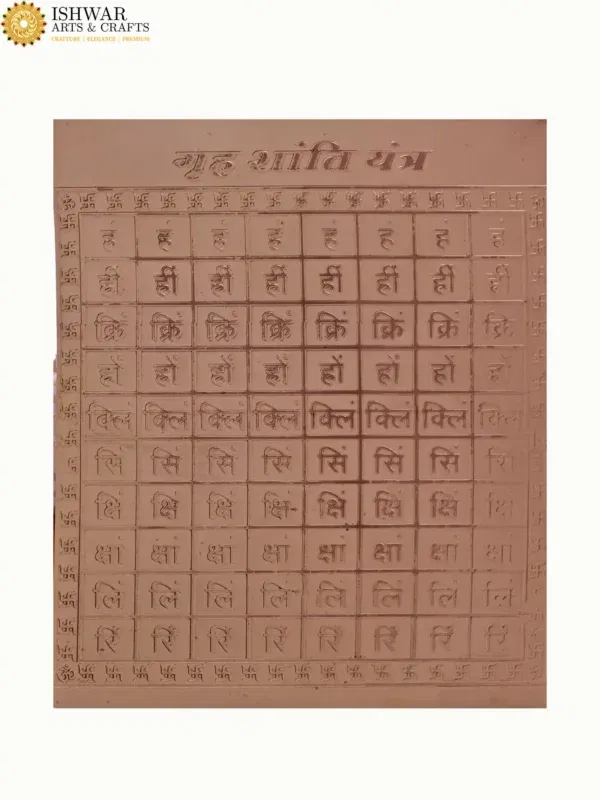 ISHWAR
ARTS & CRAFTS
CRAFTURE | ELEGANCE | PREMIUM
गृह शांति यंत्र
ह्रीं ह्रीं ह्रीं ह्रीं ह्रीं ह्रीं ह्रीं ह्रीं
क्रिं क्रिं क्रिं क्रिं क्रिं क्रिं क्रिं क्रिं
क्लिं क्लिं क्लिं क्लिं क्लिं क्लिं क्लिं क्लिं
सिं सिं सिं सिं सिं सिं सिं सिं
क्षिं क्षिं क्षिं क्षिं क्षिं क्षिं क्षिं क्षिं
क्षां क्षां क्षां क्षां क्षां क्षां क्षां क्षां
लिं लिं लिं लिं लिं लिं लिं लिं
रिं रिं रिं रिं रिं रिं रिं रिं